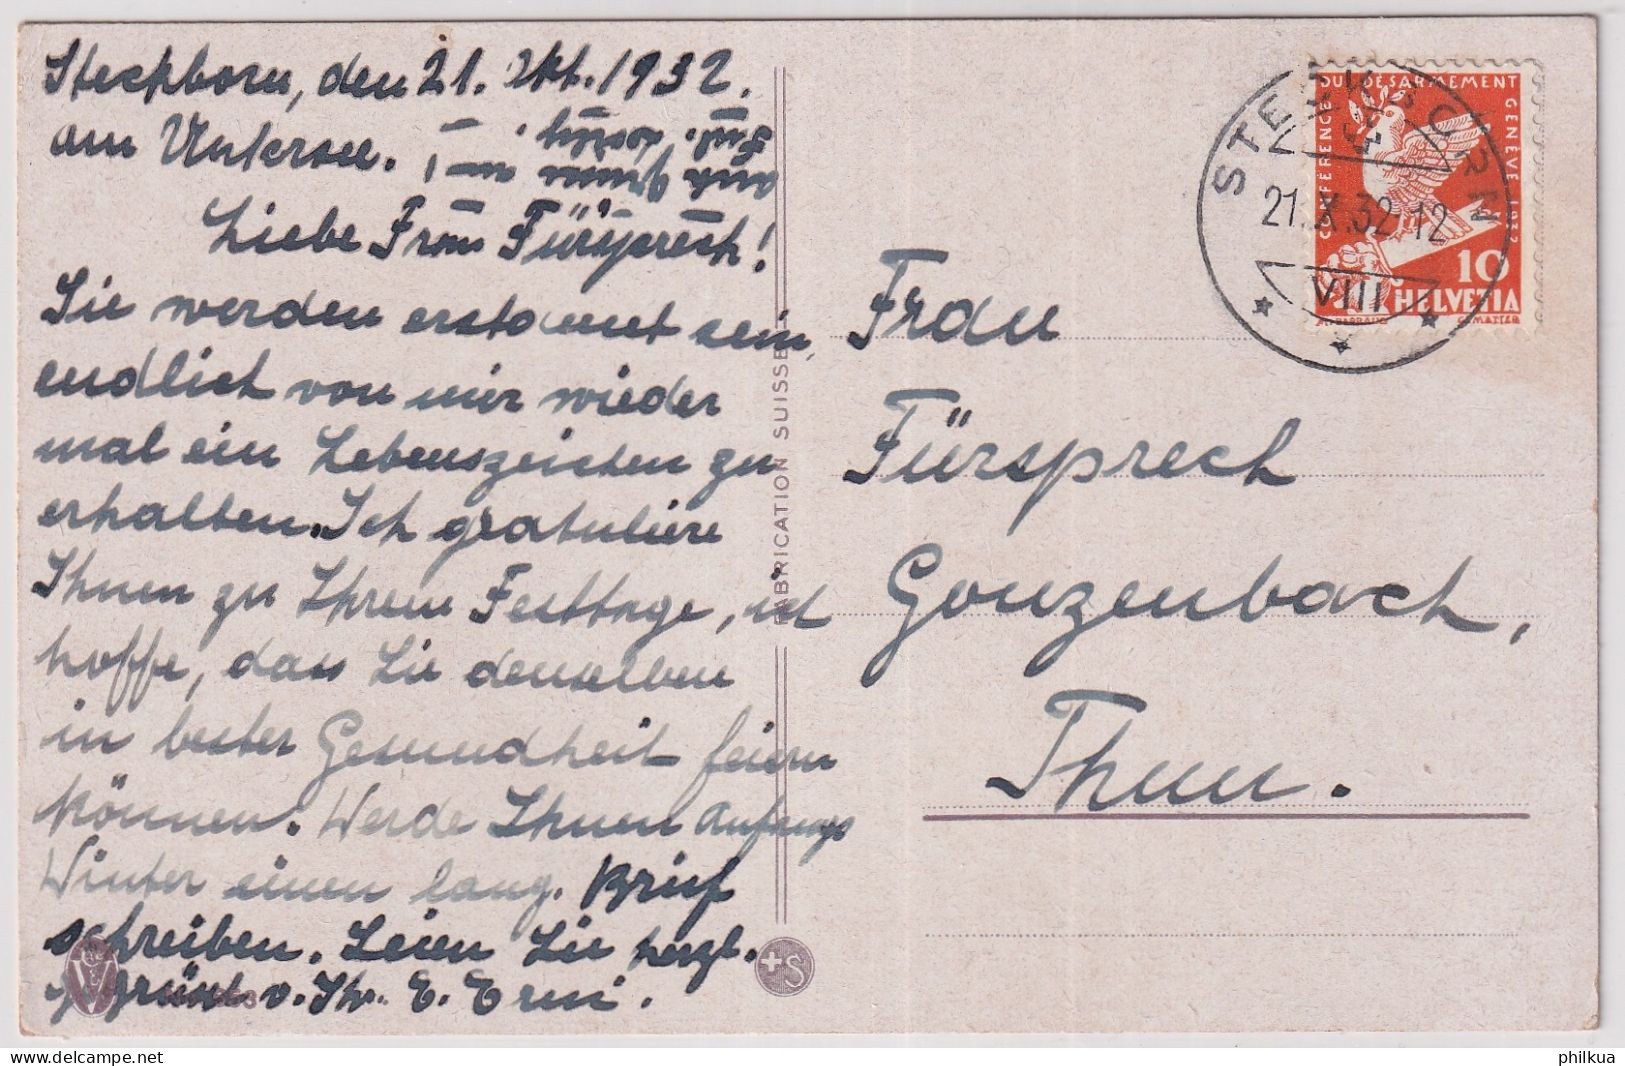 Steckborn, den 21. Okt. 1932.
am Untersee.
Liebe Frau Fürsprech!
Sie werden erstaunt sein,
endlich von mir wieder
mal ein Lebenszeichen zu
erhalten. Ich gratuliere
Ihnen zu Ihrem Festtage, und
hoffe, dass Sie denselben
in bester Gesundheit feiern
können. Werde Ihnen Anfangs
Winter einen lang. Brief
schreiben. Seien Sie herzl.
gegrüsst v. Ihr. E. Erni.
FABRICATION SUISSE
+S
V
Frau
Fürsprech
Gonzenbach,
Thun.
STECKBORN
21.X.32.12
VIII
CONFÉRENCE DU DÉSARMEMENT GENÈVE 1932
10
HELVETIA
philkua